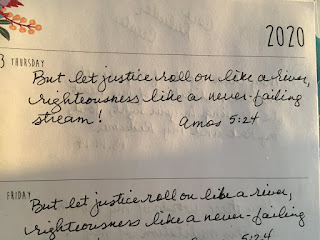 2020
3 THURSDAY
But let justice roll on like a river,
righteousness like a never-failing
stream! Amos 5:24
FRIDAY
But let justice roll on like a river,
righteousness like a never-failing
5:24